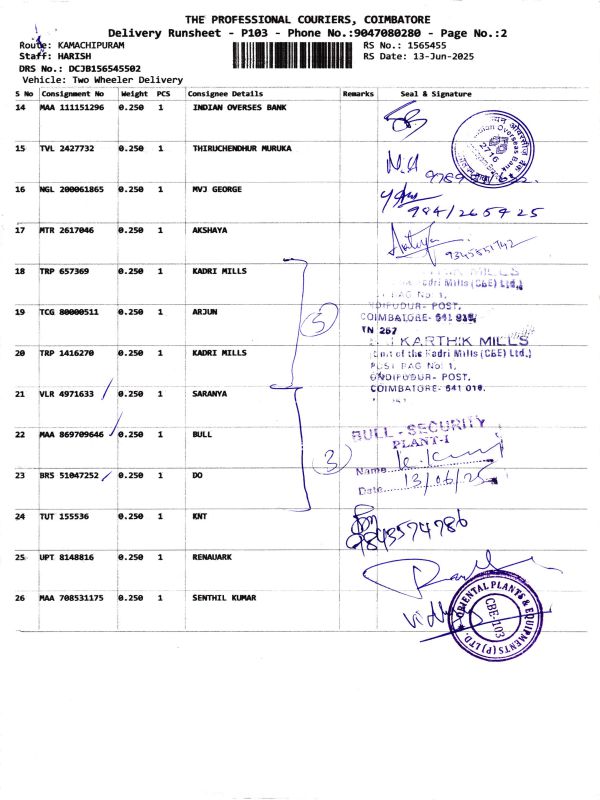 THE PROFESSIONAL COURIERS, COIMBATORE
Delivery Runsheet - P103 - Phone No.:9047080280 - Page No.:2
Route: KAMACHIPURAM
Staff: HARISH
DRS No.: DCJB156545502
Vehicle: Two Wheeler Delivery
RS No.: 1565455
RS Date: 13-Jun-2025
S No Consignment No Weight PCS Consignee Details Remarks Seal & Signature
14 MAA 111151296 0.250 1 INDIAN OVERSES BANK
Indian Overseas Bank
2716
15 TVL 2427732 0.250 1 THIRUCHENDHUR MURUKA
16 NGL 200061865 0.250 1 MVJ GEORGE
984/265925
17 MTR 2617046 0.250 1 AKSHAYA
9345851742
18 TRP 657369 0.250 1 KADRI MILLS
Kadri Mills (CBE) Ltd.,
BAG No. 1,
ONDIPUDUR- POST,
19 TCG 80000511 0.250 1 ARJUN
5
COIMBATORE- 641 016
TN 257
20 TRP 1416270 0.250 1 KADRI MILLS
KARTHIK MILLS
Unit of the Kadri Mills (CBE) Ltd.)
POST BAG No: 1,
ONDIPUDUR- POST,
21 VLR 4971633 0.250 1 SARANYA
COIMBATORE- 641 016.
22 MAA 869709646 0.250 1 BULL
BULL - SECURITY
PLANT-I
3
Name
23 BRS 51047252 0.250 1 DO
Date 13/06/25
24 TUT 155536 0.250 1 KNT
9843574786
25 UPT 8148816 0.250 1 RENAUARK
26 MAA 708531175 0.250 1 SENTHIL KUMAR
ORIENTAL PLANTS & EQUIPMENTS (P) LTD.
CBE-103